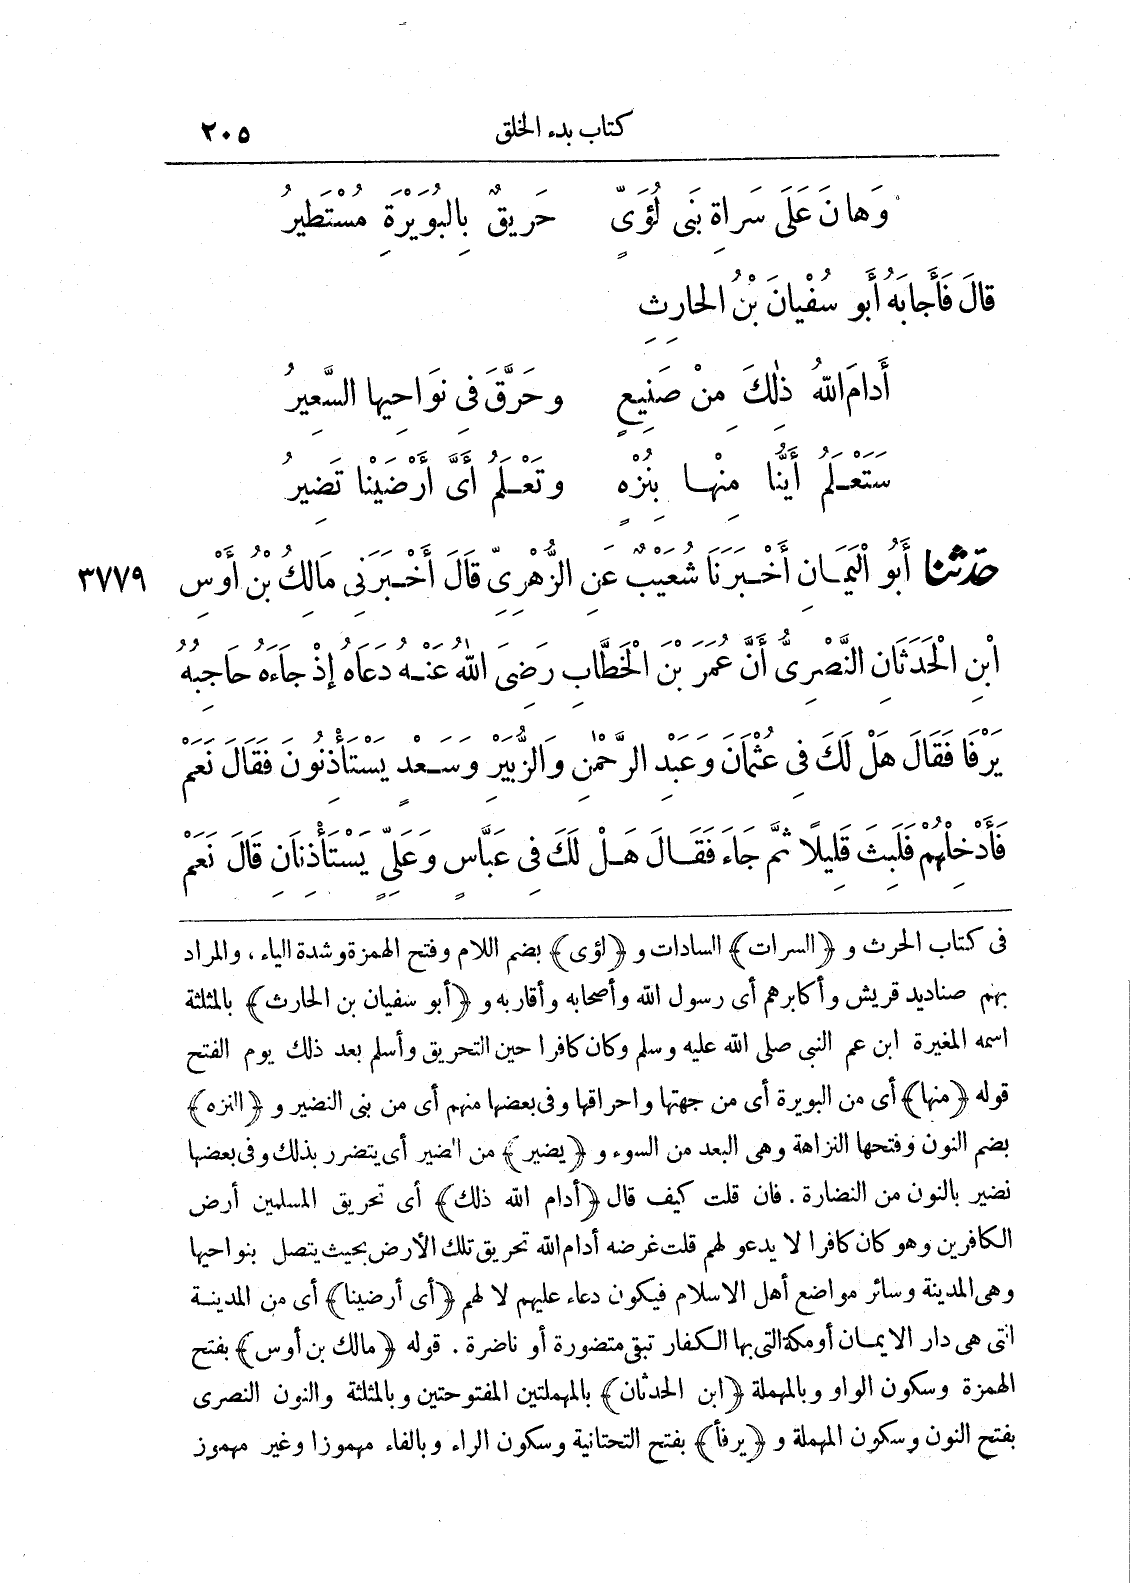 كتاب بدء الخلق ٢٠٥
وَهانَ عَلَى سَراةِ بَنَى لُؤَىٍّ حَرِيقٌ بِالبُوَيْرَةِ مُسْتَطِيرُ
قالَ فَأَجابَهُ أَبو سُفْيانَ بْنُ الحارِثِ
أَدامَ اللهُ ذٰلِكَ مِنْ صَنِيعٍ وحَرَّقَ فِى نَوَاحِيها السَّعِيرُ
سَتَعْلَمُ أَيُّنا مِنْها بِنُزْهٍ وتَعْلَمُ أَىَّ أَرْضَيْنا تَضِيرُ
حدّثنا أَبُو الْيَمَانِ أَخْبَرَنَا شُعَيْبٌ عَنِ الزُّهْرِىِّ قَالَ أَخْبَرَنِى مَالِكُ بْنُ أَوْسِ ٣٧٧٩
ابْنِ الْحَدَثَانِ النَّصْرِىُّ أَنَّ عُمَرَ بْنَ الْخَطَّابِ رَضِىَ اللهُ عَنْهُ دَعَاهُ إِذْ جاءَهُ حَاجِبُهُ
يَرْفَا فَقَالَ هَلْ لَكَ فِى عُثْمَانَ وَعَبْدِ الرَّحْمٰنِ وَالزُّبَيْرِ وَسَعْدٍ يَسْتَأْذِنُونَ فَقَالَ نَعَمْ
فَأَدْخِلْهُمْ فَلَبِثَ قَلِيلًا ثُمَّ جَاءَ فَقَالَ هَلْ لَكَ فِى عَبَّاسٍ وَعَلِىٍّ يَسْتَأْذِنَانِ قَالَ نَعَمْ
فى كتاب الحرث و ﴿السرات﴾ السادات و ﴿لؤى﴾ بضم اللام وفتح الهمزة وشدة الياء، والمراد
بهم صناديد قريش وأكابرهم أى رسول الله وأصحابه وأقاربه و ﴿أبو سفيان بن الحارث﴾ بالمثلثة
اسمه المغيرة ابن عم النبى صلى الله عليه وسلم وكان كافرا حين التحريق وأسلم بعد ذلك يوم الفتح
قوله ﴿منها﴾ أى من البويرة أى من جهتها واحراقها وفى بعضها منهم أى من بنى النضير و ﴿النزه﴾
بضم النون وفتحها النزاهة وهى البعد من السوء و ﴿يضير﴾ من الضير أى يتضرر بذلك وفى بعضها
نضير بالنون من النضارة. فان قلت كيف قال ﴿أدام الله ذلك﴾ أى تحريق المسلمين أرض
الكافرين وهو كان كافرا لا يدعو لهم قلت غرضه أدام الله تحريق تلك الأرض بحيث يتصل بنواحيها
وهى المدينة وسائر مواضع أهل الاسلام فيكون دعاء عليهم لا لهم ﴿أى أرضينا﴾ أى من المدينة
التى هى دار الايمان أو مكة التى بها الكفار تبقى متضورة أو ناضرة. قوله ﴿مالك بن أوس﴾ بفتح
الهمزة وسكون الواو وبالمهملة ﴿ابن الحدثان﴾ بالمهملتين المفتوحتين وبالمثلثة والنون النصرى
بفتح النون وسكون المهملة و ﴿يرفأ﴾ بفتح التحتانية وسكون الراء وبالفاء مهموزا وغير مهموز